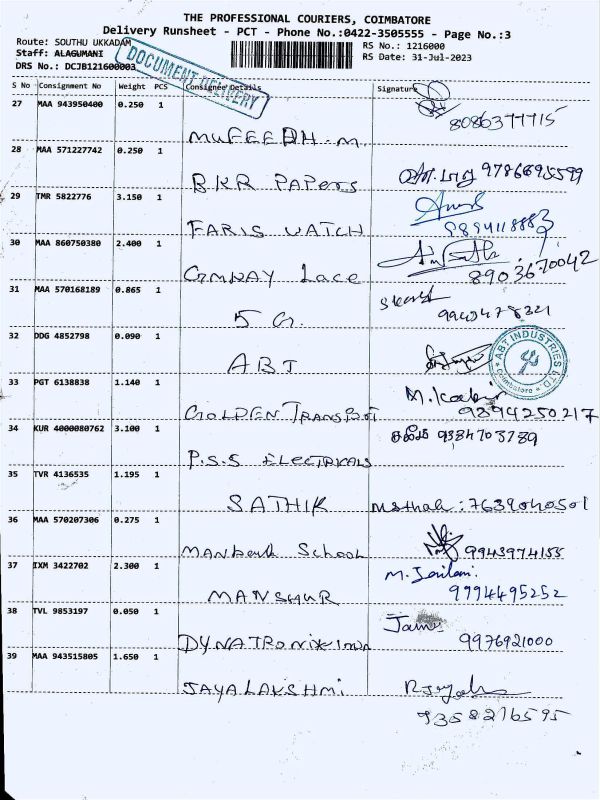 THE PROFESSIONAL COURIERS, COIMBATORE
Delivery Runsheet - PCT - Phone No.:0422-3505555 - Page No.:3
Route: SOUTHU UKKADAM
RS No.: 1216000
Staff: ALAGUMANI
RS Date: 31-Jul-2023
DRS No.: DCJB121600003
DOCUMENT DELIVERY
S No Consignment No Weight PCS Consignee Details Signature
27 MAA 943950400 0.250 1
MUFEEDH M. 8086377715
28 MAA 571227742 0.250 1
BKR PAPers 9786695599
29 TMR 5822776 3.150 1
FARIS WATCH
30 MAA 860750380 2.400 1
Lace 8903670042
31 MAA 570168189 0.865 1
5 G.
32 DDG 4852798 0.090 1
ABT
ABT INDUSTRIES LTD
Coimbatore
33 PGT 6138838 1.140 1
GOLDEN TRANSPOT 9394250217
34 KUR 4000080762 3.100 1
P.S.S ELECTRICALS
35 TVR 4136535 1.195 1
SATHIK
36 MAA 570207306 0.275 1
School 9943974155
37 IXM 3422702 2.300 1
MANSHUR M. Jailani. 9994495252
38 TVL 9853197 0.050 1
9976921000
39 MAA 943515805 1.650 1
JAYALAKSHMI
9358216595